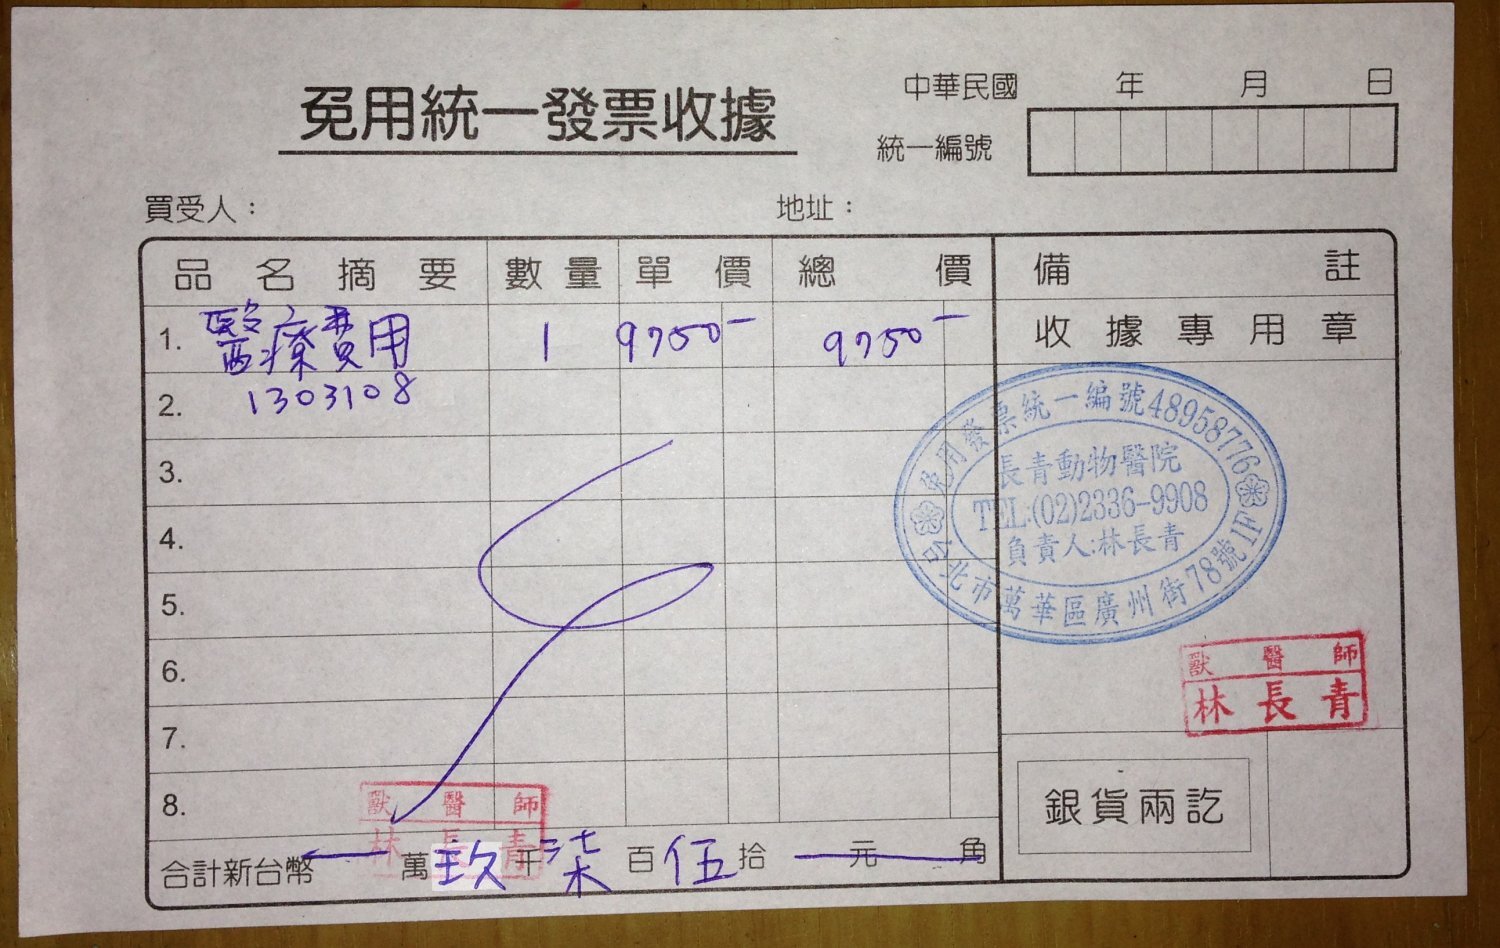 免用統一發票收據
中華民國 年 月 日
統一編號
買受人：
地址：
品名摘要 數量 單價 總價 備註
1. 醫療費用 1 9750- 9750-
收據專用章
2. 1303108
3.
4.
5.
6.
7.
8.
免用發票統一編號48958776
長青動物醫院
TEL:(02)2336-9908
負責人:林長青
台北市萬華區廣州街78號1F
獸醫師
林長青
銀貨兩訖
獸醫師
林長青
合計新台幣 萬玖仟柒百伍拾 元 角